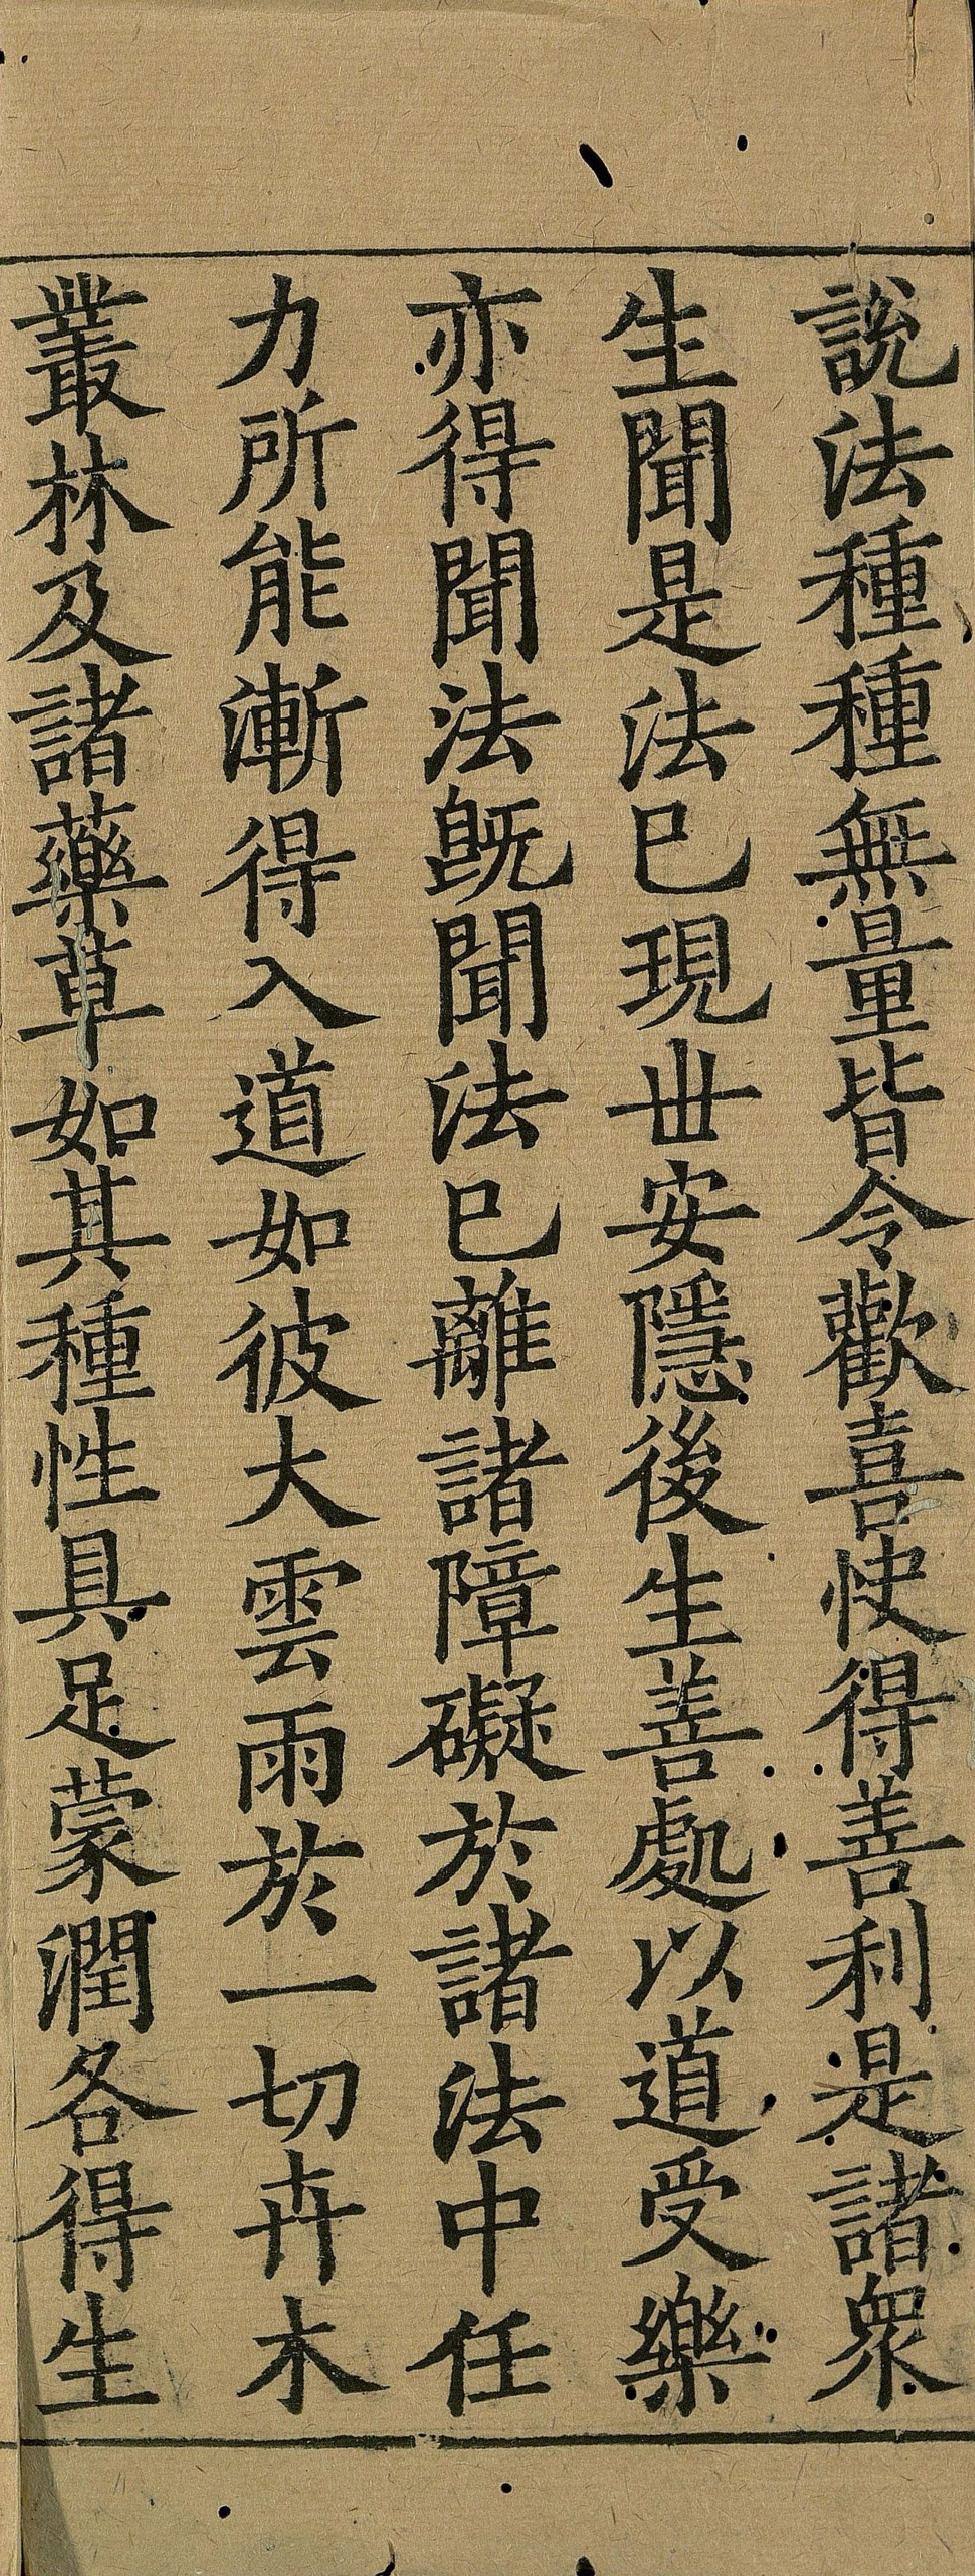 說法種種無量皆令歡喜快得善利是諸衆
生聞是法已現丗安隱後生善處以道受樂
亦得聞法既聞法已離諸障礙於諸法中任
力所能漸得入道如彼大雲雨於一切卉木
叢林及諸藥草如其種性具足蒙潤各得生